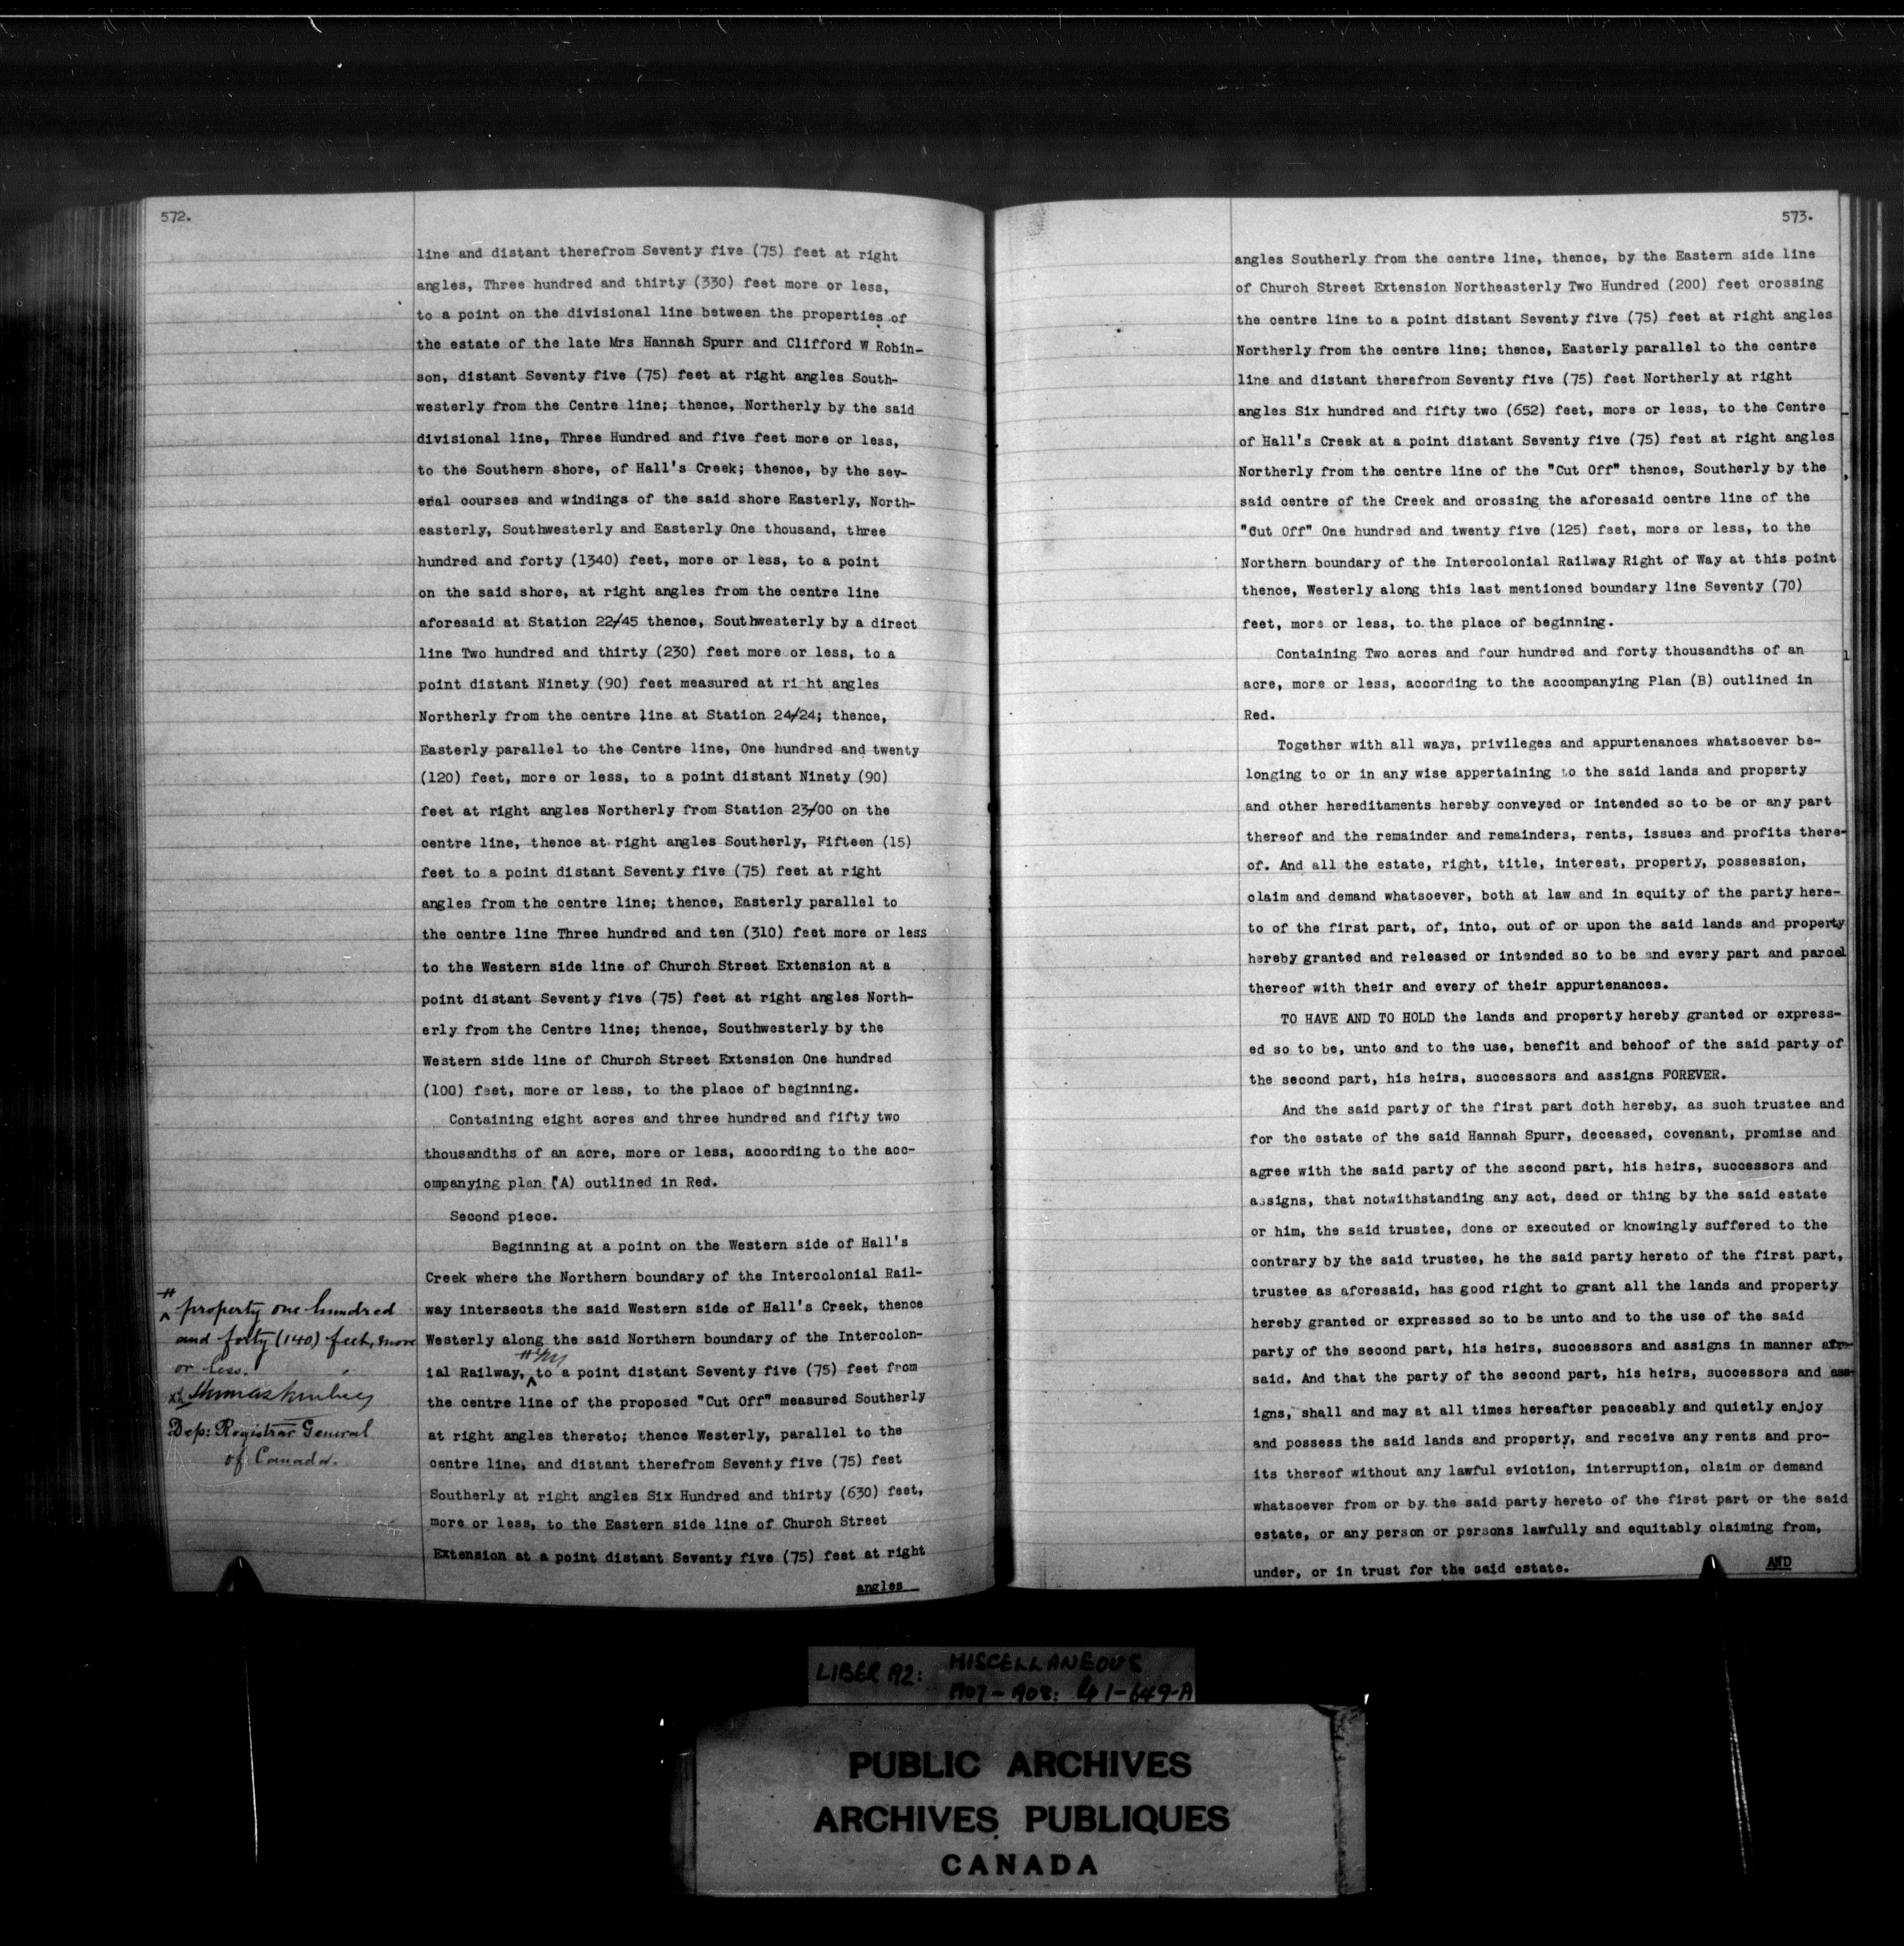 572.
line and distant therefrom Seventy five (75) feet at right
angles, Three hundred and thirty (330) feet more or less,
to a point on the divisional line between the properties of
the estate of the late Mrs Hannah Spurr and Clifford W Robin-
son, distant Seventy five (75) feet at right angles South-
westerly from the Centre line; thence, Northerly by the said
divisional line, Three Hundred and five feet more or less,
to the Southern shore, of Hall's Creek; thence, by the sev-
eral courses and windings of the said shore Easterly, North-
easterly, Southwesterly and Easterly One thousand, three
hundred and forty (1340) feet, more or less, to a point
on the said shore, at right angles from the centre line
aforesaid at Station 22/45 thence, Southwesterly by a direct
line Two hundred and thirty (230) feet more or less, to a
point distant Ninety (90) feet measured at right angles
Northerly from the centre line at Station 24/24; thence,
Easterly parallel to the Centre line, One hundred and twenty
(120) feet, more or less, to a point distant Ninety (90)
feet at right angles Northerly from Station 23/00 on the
centre line, thence at right angles Southerly, Fifteen (15)
feet to a point distant Seventy five (75) feet at right
angles from the centre line; thence, Easterly parallel to
the centre line Three hundred and ten (310) feet more or less
to the Western side line of Church Street Extension at a
point distant Seventy five (75) feet at right angles North-
erly from the Centre line; thence, Southwesterly by the
Western side line of Church Street Extension One hundred
(100) feet, more or less, to the place of beginning.
Containing eight acres and three hundred and fifty two
thousandths of an acre, more or less, according to the acc-
ompanying plan (A) outlined in Red.
Second piece.
Beginning at a point on the Western side of Hall's
Creek where the Northern boundary of the Intercolonial Rail-
way intersects the said Western side of Hall's Creek, thence
Westerly along the said Northern boundary of the Intercolon-
ial Railway, to a point distant Seventy five (75) feet from
the centre line of the proposed "Cut Off" measured Southerly
at right angles thereto; thence Westerly, parallel to the
centre line, and distant therefrom Seventy five (75) feet
Southerly at right angles Six Hundred and thirty (630) feet,
more or less, to the Eastern side line of Church Street
Extension at a point distant Seventy five (75) feet at right
angles
property one hundred
and forty (140) feet, more
or less.
Dep: Registrar General
of Canada.
573.
angles Southerly from the centre line, thence, by the Eastern side line
of Church Street Extension Northeasterly Two Hundred (200) feet crossing
the centre line to a point distant Seventy five (75) feet at right angles
Northerly from the centre line; thence, Easterly parallel to the centre
line and distant therefrom Seventy five (75) feet Northerly at right
angles Six hundred and fifty two (652) feet, more or less, to the Centre
of Hall's Creek at a point distant Seventy five (75) feet at right angles
Northerly from the centre line of the "Cut Off" thence, Southerly by the
said centre of the Creek and crossing the aforesaid centre line of the
"Cut Off" One hundred and twenty five (125) feet, more or less, to the
Northern boundary of the Intercolonial Railway Right of Way at this point
thence, Westerly along this last mentioned boundary line Seventy (70)
feet, more or less, to the place of beginning.
Containing Two acres and four hundred and forty thousandths of an
acre, more or less, according to the accompanying Plan (B) outlined in
Red.
Together with all ways, privileges and appurtenances whatsoever be-
longing to or in any wise appertaining to the said lands and property
and other hereditaments hereby conveyed or intended so to be or any part
thereof and the remainder and remainders, rents, issues and profits there-
of. And all the estate, right, title, interest, property, possession,
claim and demand whatsoever, both at law and in equity of the party here-
to of the first part, of, into, out of or upon the said lands and property
hereby granted and released or intended so to be and every part and parcel
thereof with their and every of their appurtenances.
TO HAVE AND TO HOLD the lands and property hereby granted or express-
ed so to be, unto and to the use, benefit and behoof of the said party of
the second part, his heirs, successors and assigns FOREVER.
And the said party of the first part doth hereby, as such trustee and
for the estate of the said Hannah Spurr, deceased, covenant, promise and
agree with the said party of the second part, his heirs, successors and
assigns, that notwithstanding any act, deed or thing by the said estate
or him, the said trustee, done or executed or knowingly suffered to the
contrary by the said trustee, he the said party hereto of the first part,
trustee as aforesaid, has good right to grant all the lands and property
hereby granted or expressed so to be unto and to the use of the said
party of the second part, his heirs, successors and assigns in manner afre-
said. And that the party of the second part, his heirs, successors and ass-
igns, shall and may at all times hereafter peaceably and quietly enjoy
and possess the said lands and property, and receive any rents and pro-
its thereof without any lawful eviction, interruption, claim or demand
whatsoever from or by the said party hereto of the first part or the said
estate, or any person or persons lawfully and equitably claiming from,
under, or in trust for the said estate.
AND
LIBER 92: MISCELLANEOUS
1907-1908: 41-649-A
PUBLIC ARCHIVES
ARCHIVES PUBLIQUES
CANADA